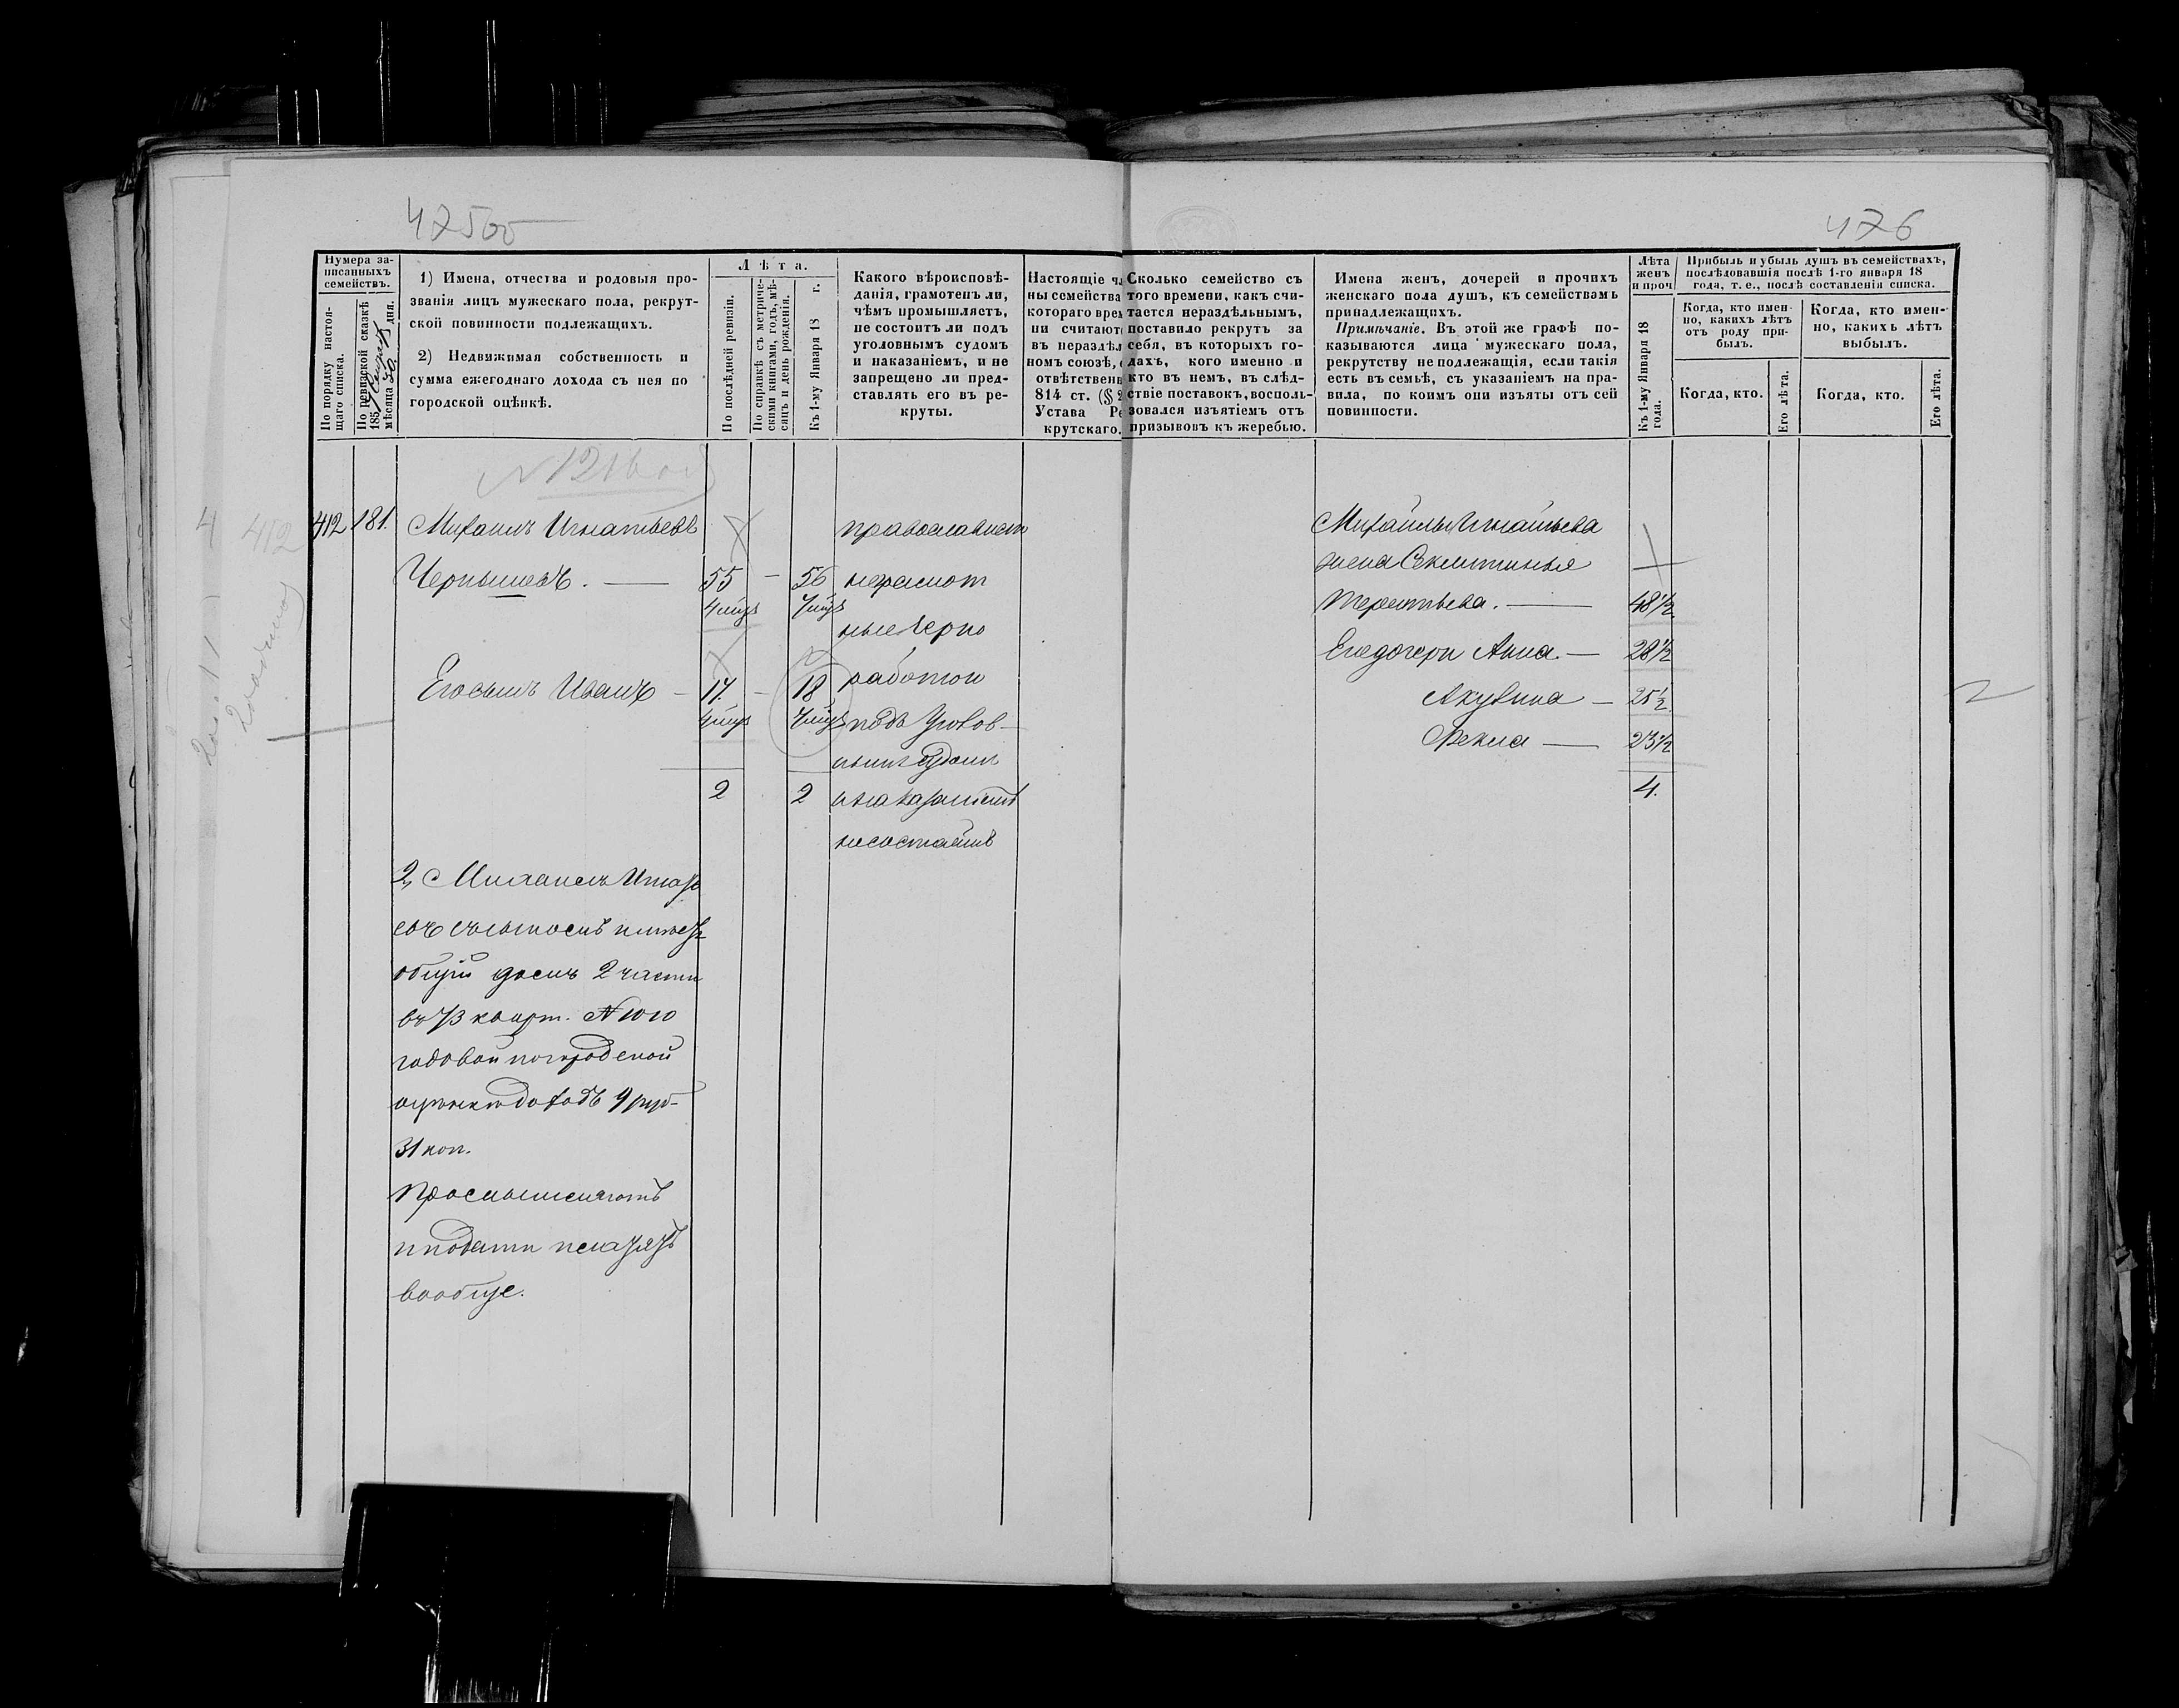 47500
476
Нумера записанныхъ семействъ.
По порядку настоящаго списка.
По ревизской сказкѣ 185 мѣсяца дня.
1) Имена, отчества и родовыя прозванія лицъ мужескаго пола, рекрутской повинности подлежащихъ.
2) Недвижимая собственность и сумма ежегоднаго дохода съ нея по городской оцѣнкѣ.
Лѣта.
По послѣдней ревизіи.
По справкѣ съ метрическими книгами, годъ, мѣсяцъ и день рожденія.
Къ 1-му Января 18 г.
Какого вѣроисповѣданія, грамотенъ ли, чѣмъ промышляетъ, не состоитъ ли подъ уголовнымъ судомъ и наказаніемъ, и не запрещено ли представлять его въ рекруты.
Настоящіе
ны семейства
котораго
ни считают
въ
номъ союзѣ,
814 ст.
Устава
крутскаго.
Сколько семейство съ того времени, какъ считается нераздѣльнымъ, поставило рекрутъ за себя, въ которыхъ годахъ, кого именно и кто въ немъ, въ слѣдствіе поставокъ, воспользовался изъятіемъ отъ призывовъ къ жеребью.
Имена женъ, дочерей и прочихъ женскаго пола душъ, къ семействамъ принадлежащихъ.
Примѣчаніе. Въ этой же графѣ показываются лица мужескаго пола, рекрутству не подлежащія, если такія есть въ семьѣ, съ указаніемъ на правила, по коимъ они изъяты отъ сей повинности.
Лѣта женъ и проч
Къ 1-му Января 18 года.
Прибыль и убыль душъ въ семействахъ, послѣдовавшія послѣ 1-го января 18 года, т. е., послѣ составленія списка.
Когда, кто именно, какихъ лѣтъ отъ роду прибылъ.
Когда, кто именно, какихъ лѣтъ выбылъ.
Когда, кто.
Его лѣта.
Когда, кто.
Его лѣта.
412
412 181. Михаилъ Игнатьевъ
Чернышевъ. — 55 — 56
Его сынъ Иванъ — 17. — 18
2 2
православнаго
неграмот
ные черно
работой
подъ Уголов-
нымъ судомъ
и наказаніемъ
несостоятъ
Михайлы Игнатьева
жена Секлитинья
Терентьева. — 48½
Его дочери Анна — 28½
Акулина — 25½
Фекла — 23½
4.
2, Михаилъ
общій домъ 2 части
въ 73 кварт. № 1010
годовой по городской
оцѣнкѣ доходъ 9 руб-
31 коп.
Промышляютъ
и подати
вообще.